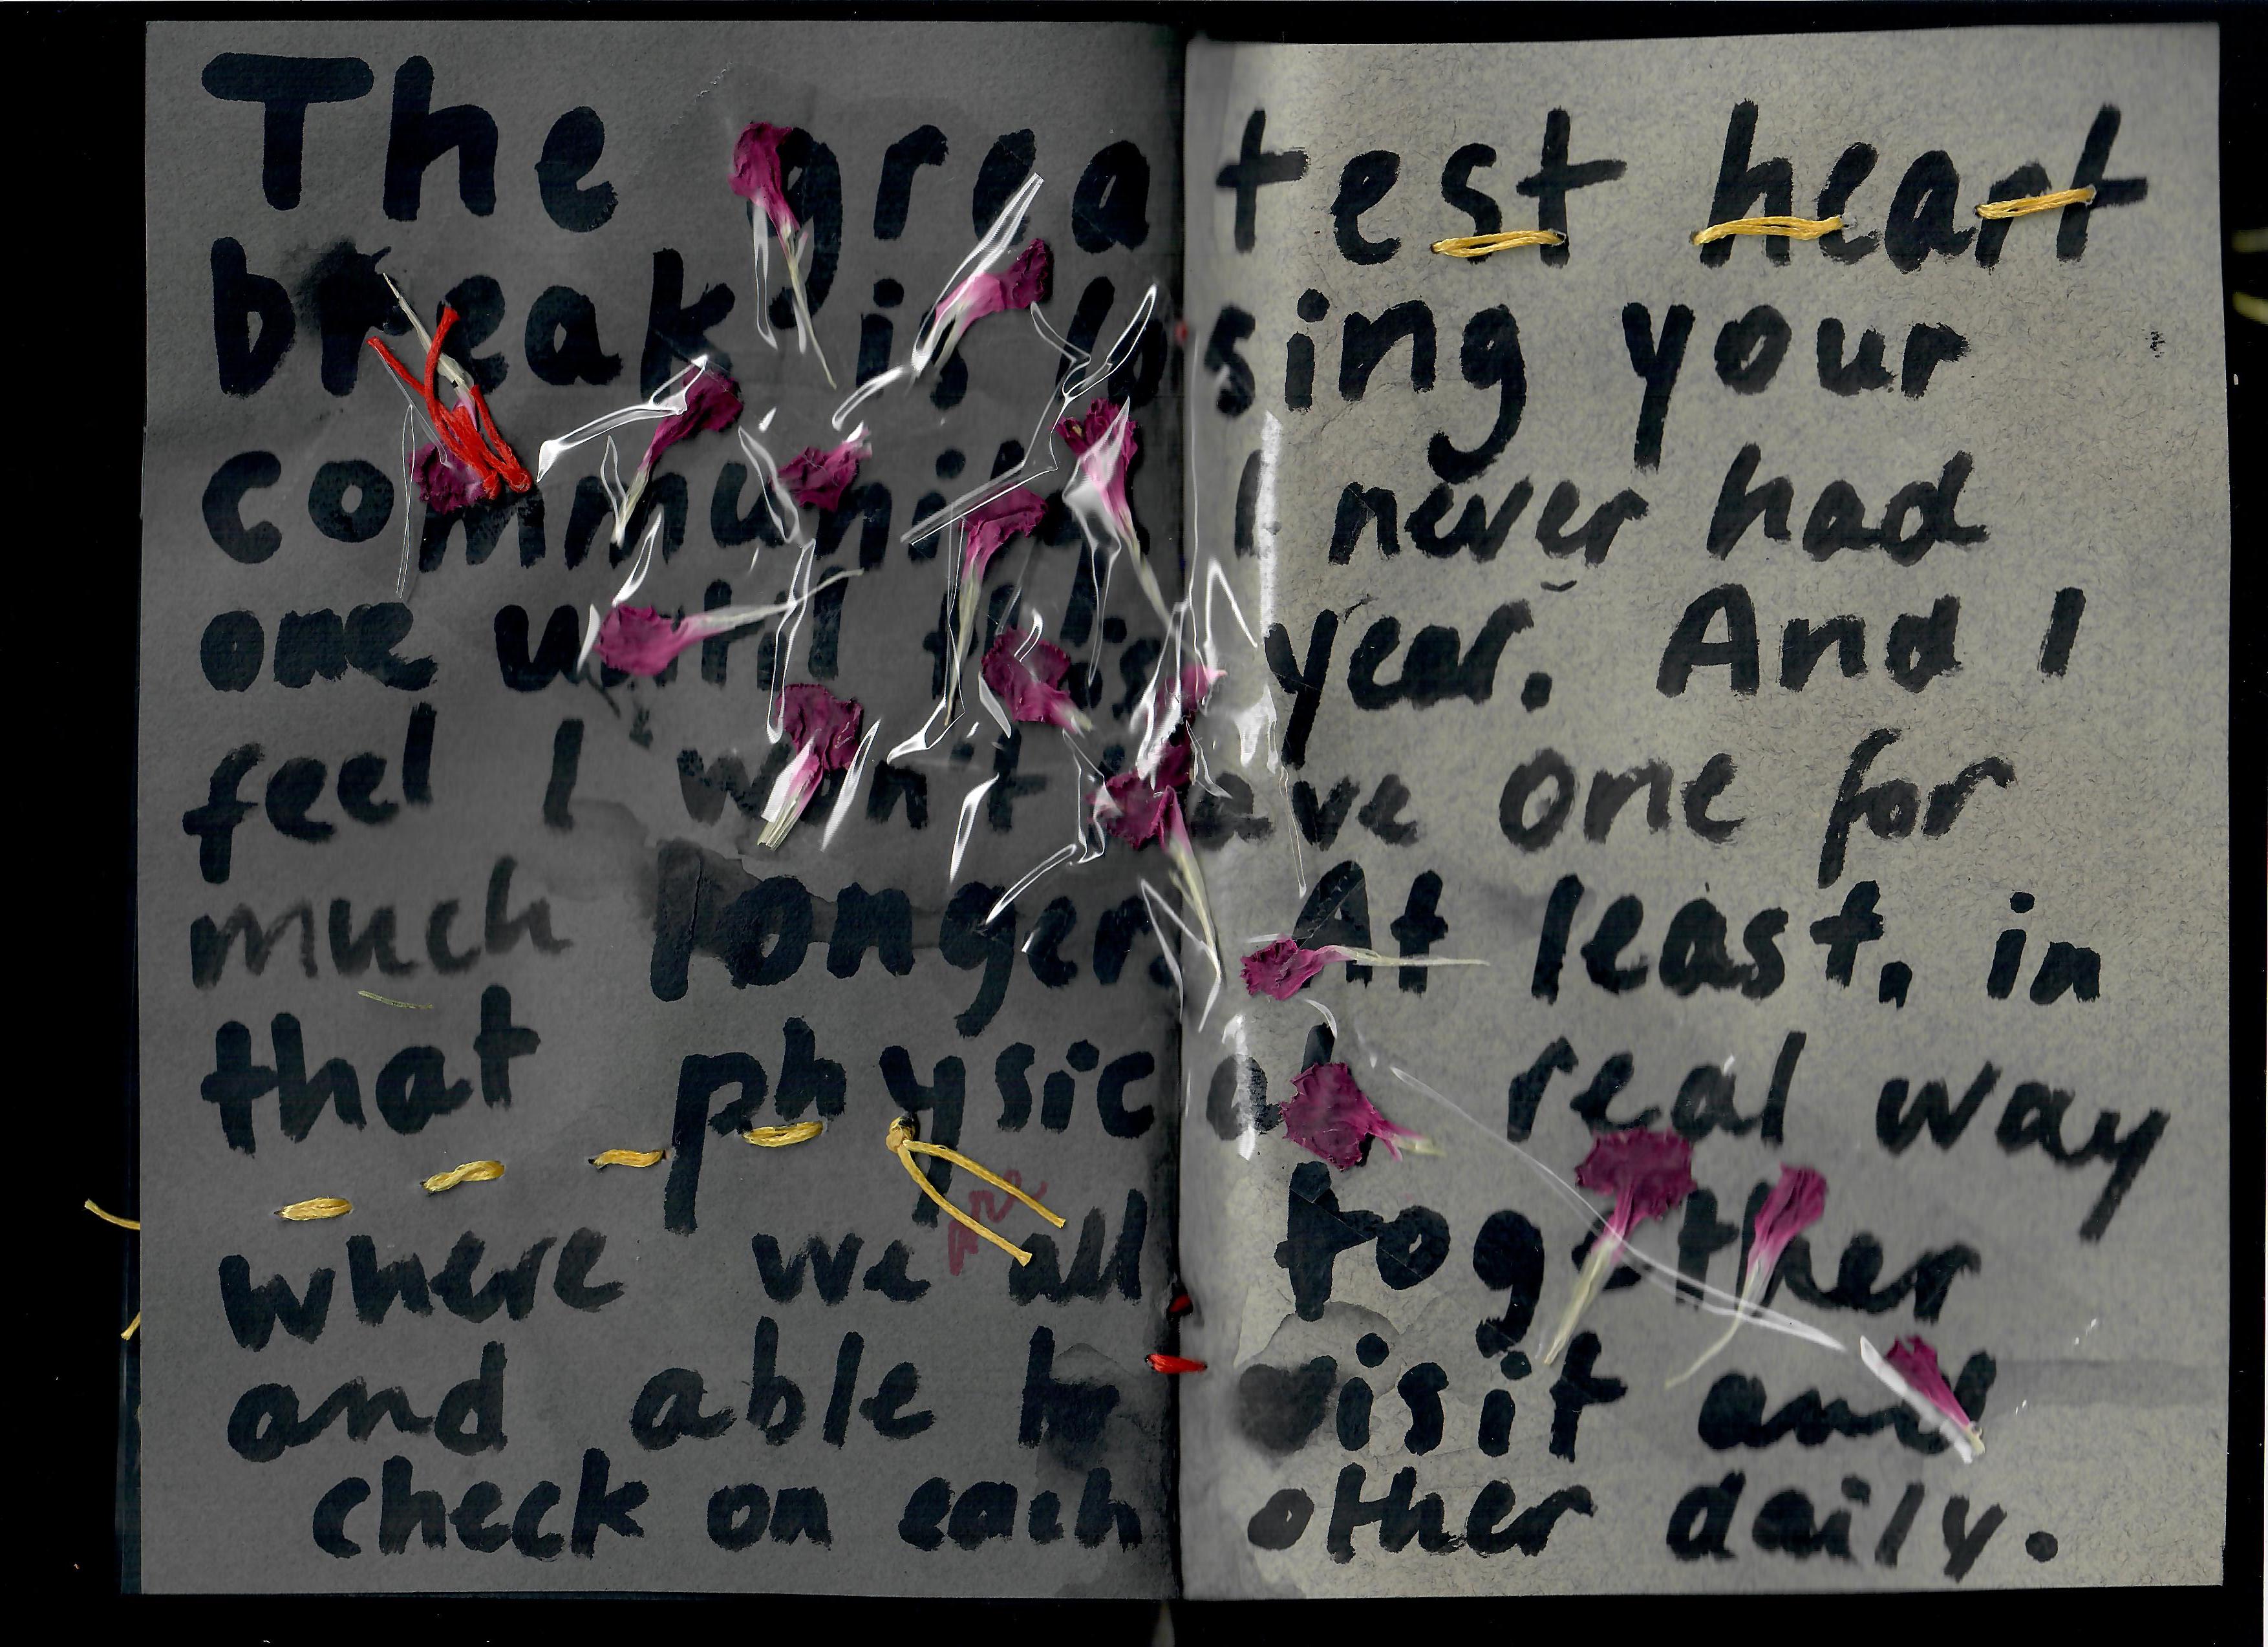 The greatest heart
break is losing your
community I never had
one until this year. And I
feel I won't have one for
much longer. At least, in
that physical real way
where we are all together
and able to visit and
check on each other daily.